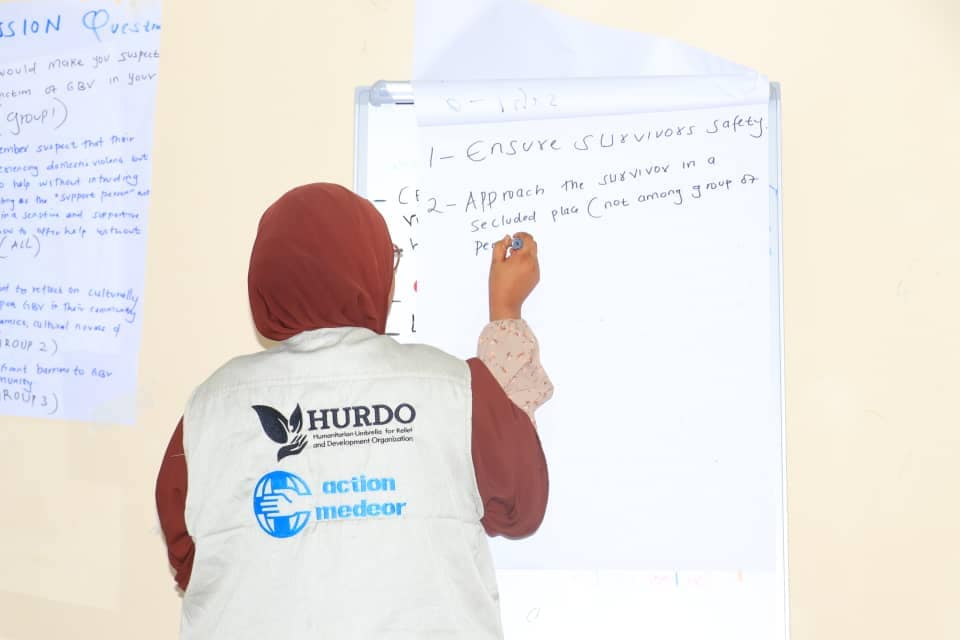 SSION Questio
would make you suspect
victim of GBV in your
Group 1)
ember suspect that their
eriencing domestic violence but
o help without intruding
ting as the "support person" out
in a sensitive and supportive
how to offer help without
(ALL)
nt to reflect on culturally
GBV in their community
amics, cultural norms of
GROUP 2)
ficant barriers to GBV
munity
GROUP 3)
1- Ensure survivors safety.
2- Approach the survivor in a
secluded place (not among group of
pe
HURDO
Humanitarian Umbrella for Relief
and Development Organization
action
medeor